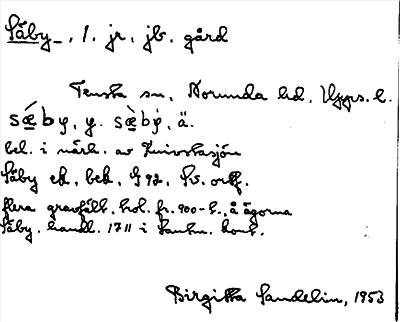 Såby, 1. jr. jb. gård
Tensta sn, Norunda hd, Upps. l.
sǽby, y. sæ̀bẏ, ä.
bel. i närh. av
Såby ek, bek, G 92, Sv. ortf.
flera gravfält, hol. fr. 900-t., å ägorna
Såby. handl. 1711 i Lantm. kont.
Birgitta Sandelin, 1953